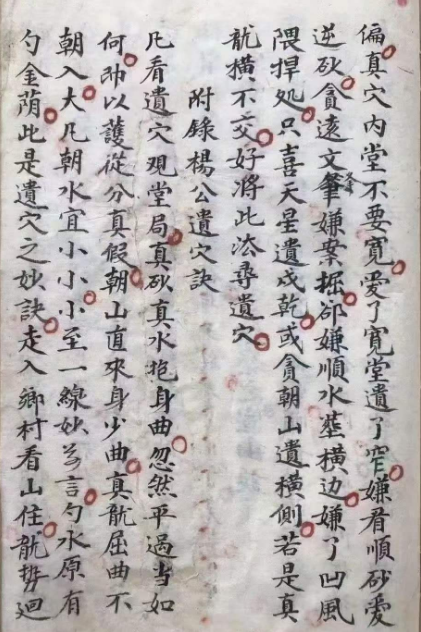 偏真穴內堂不要寬愛了寬堂遺了窄嫌看順砂愛
逆砂貪遠文筆嫌案掘卻嫌順水塟橫边嫌了凹風
隈捍処只喜天星遺戍乾或貪朝山遺橫側若是真
龍橫不交好將此法尋遺穴
附錄楊公遺穴訣
凡看遺穴观堂局真砂真水抱身曲忽然平過当如
何卽以護從分真假朝山直來身少曲真龍屈曲不
朝入大凡朝水宜小小小至一線妙言勺水原有
勺金荫此是遺穴之妙訣走入鄉村看山住龍势廻